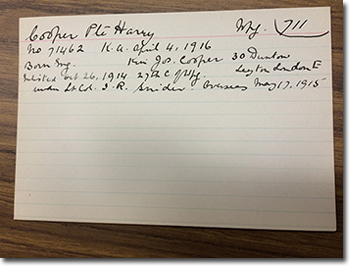 Cooper Pte Harry Wpg. 711
No 71462 K. a. april 4, 1916
Born Eng. Kin Jos. Cooper 30 Dunton
Enlisted Oct 26, 1914 27th C of Wpg. Leyton London E
under Lt Col. I. R. Snider Overseas May 17, 1915